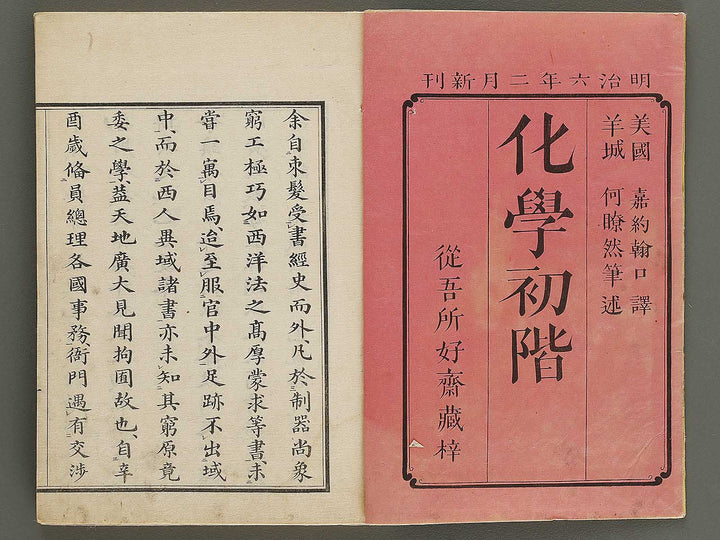 明治六年二月新刊
美國 嘉約翰口譯
羊城 何瞭然筆述
化學初階
從吾所好齋藏梓
余自束髮受書經史而外凡於制器尚象
窮工極巧如西洋法之高厚蒙求等書未
嘗一寓目焉迨至服官中外足跡不出域
中而於西人異域諸書亦未知其窮原竟
委之學葢天地廣大見聞拘囿故也自辛
酉歲俻員總理各國事務衙門遇有交涉